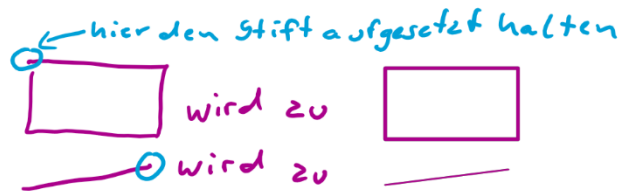 hier den Stift aufgesetzt halten
wird zu
wird zu